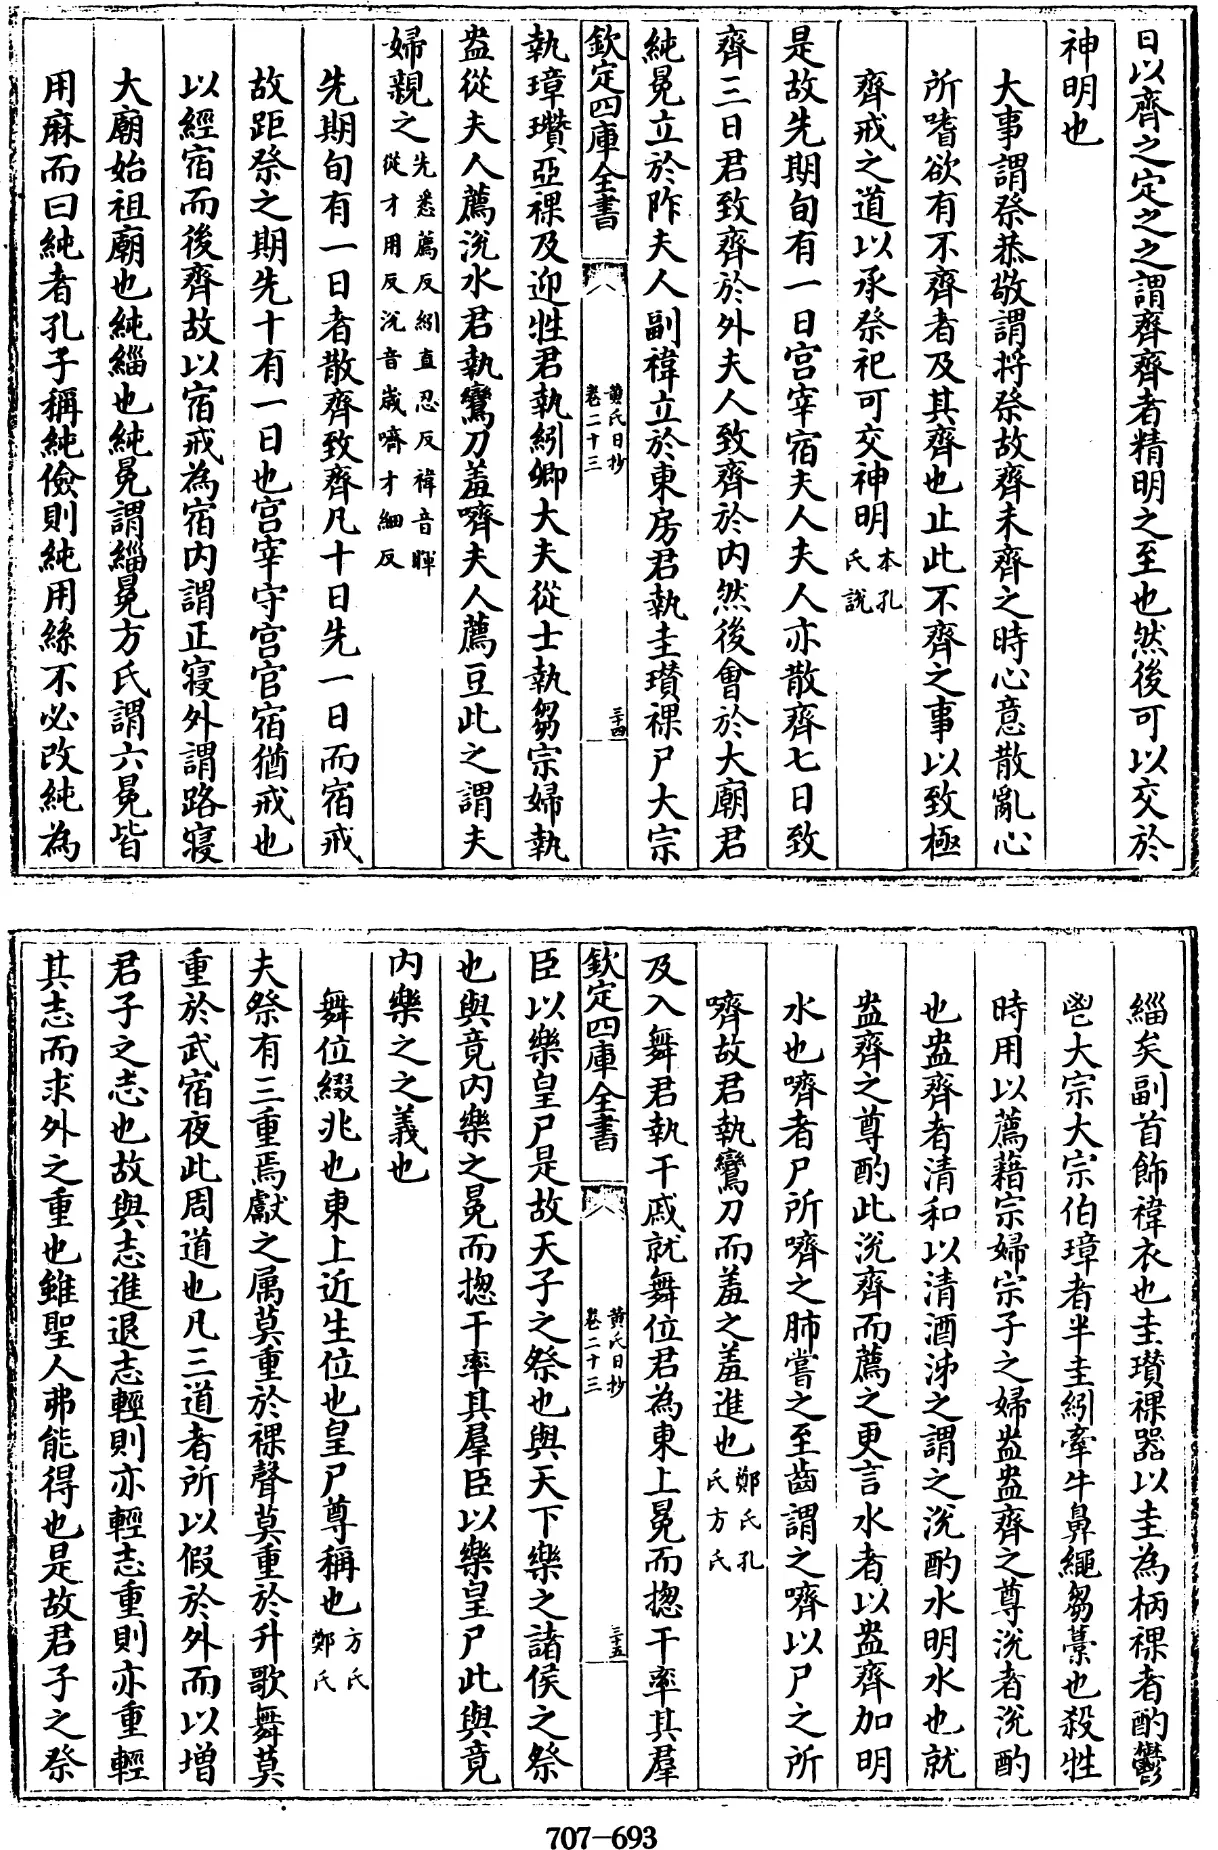 日以齊之定之之謂齊齊者精明之至也然後可以交於
神明也
大事謂祭恭敬謂將祭故齊未齊之時心意散亂心
所嗜欲有不齊者及其齊也止此不齊之事以致極
齊戒之道以承祭祀可交神明本孔氏說
是故先期旬有一日宫宰宿夫人夫人亦散齊七日致
齊三日君致齊於外夫人致齊於内然後會於大廟君
純冕立於阼夫人副褘立於東房君執圭瓚祼尸大宗
欽定四庫全書
黄氏日抄
卷二十三
三十四
執璋瓚亞祼及迎牲君執紖卿大夫從士執芻宗婦執
盎從夫人薦涗水君執鸞刀羞嚌夫人薦豆此之謂夫
婦親之先悉薦反紖直忍反褘音暉從才用反涗音歲嚌才細反
先期旬有一日者散齊致齊凡十日先一日而宿戒
故距祭之期先十有一日也宫宰守宫官宿猶戒也
以經宿而後齊故以宿戒為宿内謂正寢外謂路寢
大廟始祖廟也純緇也純冕謂緇冕方氏謂六冕皆
用麻而曰純者孔子稱純儉則純用絲不必改純為
緇矣副首飾褘衣也圭瓚祼器以圭為柄祼者酌鬱
鬯大宗大宗伯璋者半圭紖牽牛鼻繩芻藁也殺牲
時用以薦藉宗婦宗子之婦盎盎齊之尊涗者涗酌
也盎齊者清和以清酒泲之謂之涗酌水明水也就
盎齊之尊酌此涗齊而薦之更言水者以盎齊加明
水也嚌者尸所嚌之肺嘗之至齒謂之嚌以尸之所
嚌故君執鸞刀而羞之羞進也鄭氏孔氏方氏
及入舞君執干戚就舞位君為東上冕而揔干率其羣
欽定四庫全書
黄氏日抄
卷二十三
三十五
臣以樂皇尸是故天子之祭也與天下樂之諸侯之祭
也與竟内樂之冕而揔干率其羣臣以樂皇尸此與竟
内樂之之義也
舞位綴兆也東上近生位也皇尸尊稱也方氏鄭氏
夫祭有三重焉獻之属莫重於祼聲莫重於升歌舞莫
重於武宿夜此周道也凡三道者所以假於外而以增
君子之志也故與志進退志輕則亦輕志重則亦重輕
其志而求外之重也雖聖人弗能得也是故君子之祭
707-693